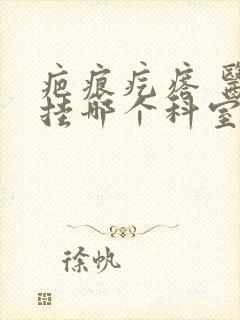 疤痕疙瘩 醫
挂哪个科室
徐帆